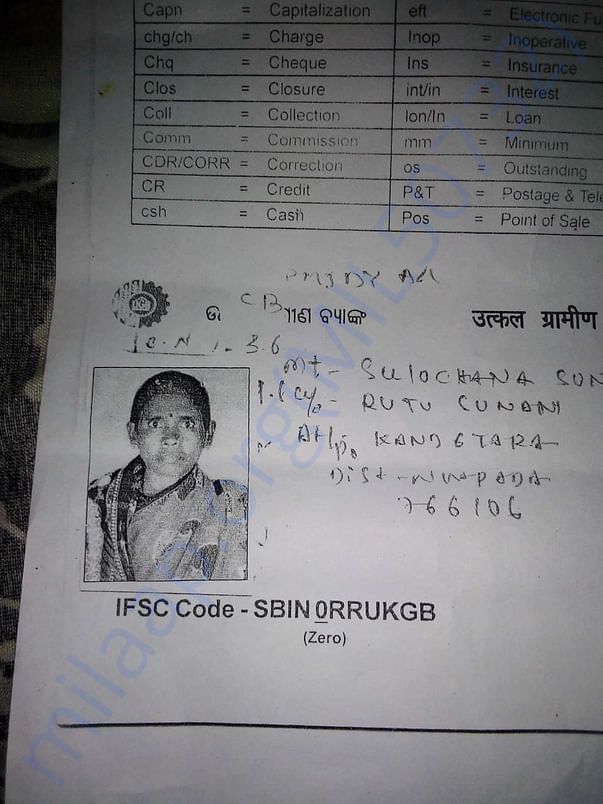 Capn = Capitalization eft = Electronic Fu
chg/ch = Charge Inop = Inoperative
Chq = Cheque Ins = Insurance
Clos = Closure int/in = Interest
Coll = Collection lon/ln = Loan
Comm = Commission mm = Minimum
CDR/CORR = Correction os = Outstanding
CR = Credit P&T = Postage & Tele
csh = Cash Pos = Point of Sale
PMJDY
CB ମୀଣ ବ୍ୟାଙ୍କ उत्कल ग्रामीण
SULOCHANA SUN
RUTU SUNANI
KANDETARA
Dist - NUAPADA
766106
IFSC Code - SBIN0RRUKGB
(Zero)